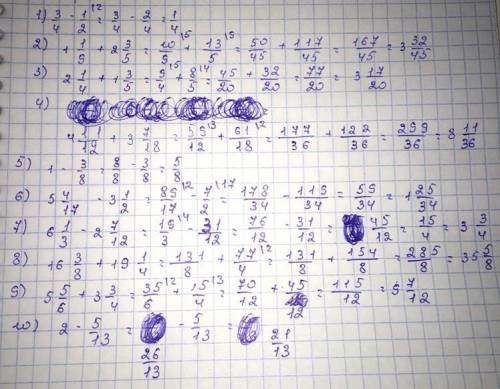 1) 3/4 - 1/2 \2 = 3/4 - 2/4 = 1/4
2) 1 1/9 + 2 3/5 = 10/9 \5 + 13/5 \9 = 50/45 + 117/45 = 167/45 = 3 32/45
3) 2 1/4 + 1 3/5 = 9/4 \5 + 8/5 \4 = 45/20 + 32/20 = 77/20 = 3 17/20
4)
4 11/12 + 3 7/18 = 59/12 \3 + 61/18 \2 = 177/36 + 122/36 = 299/36 = 8 11/36
5) 1 - 3/8 = 8/8 - 3/8 = 5/8
6) 5 4/17 - 3 1/2 = 89/17 \2 - 7/2 \17 = 178/34 - 119/34 = 59/34 = 1 25/34
7) 6 1/3 - 2 7/12 = 19/3 \4 - 31/12 = 76/12 - 31/12 = 45/12 = 15/4 = 3 3/4
8) 16 3/8 + 19 1/4 = 131/8 + 77/4 \2 = 131/8 + 154/8 = 285/8 = 35 5/8
9) 5 5/6 + 3 3/4 = 35/6 \2 + 15/4 \3 = 70/12 + 45/12 = 115/12 = 9 7/12
10) 2 - 5/13 = 26/13 - 5/13 = 21/13